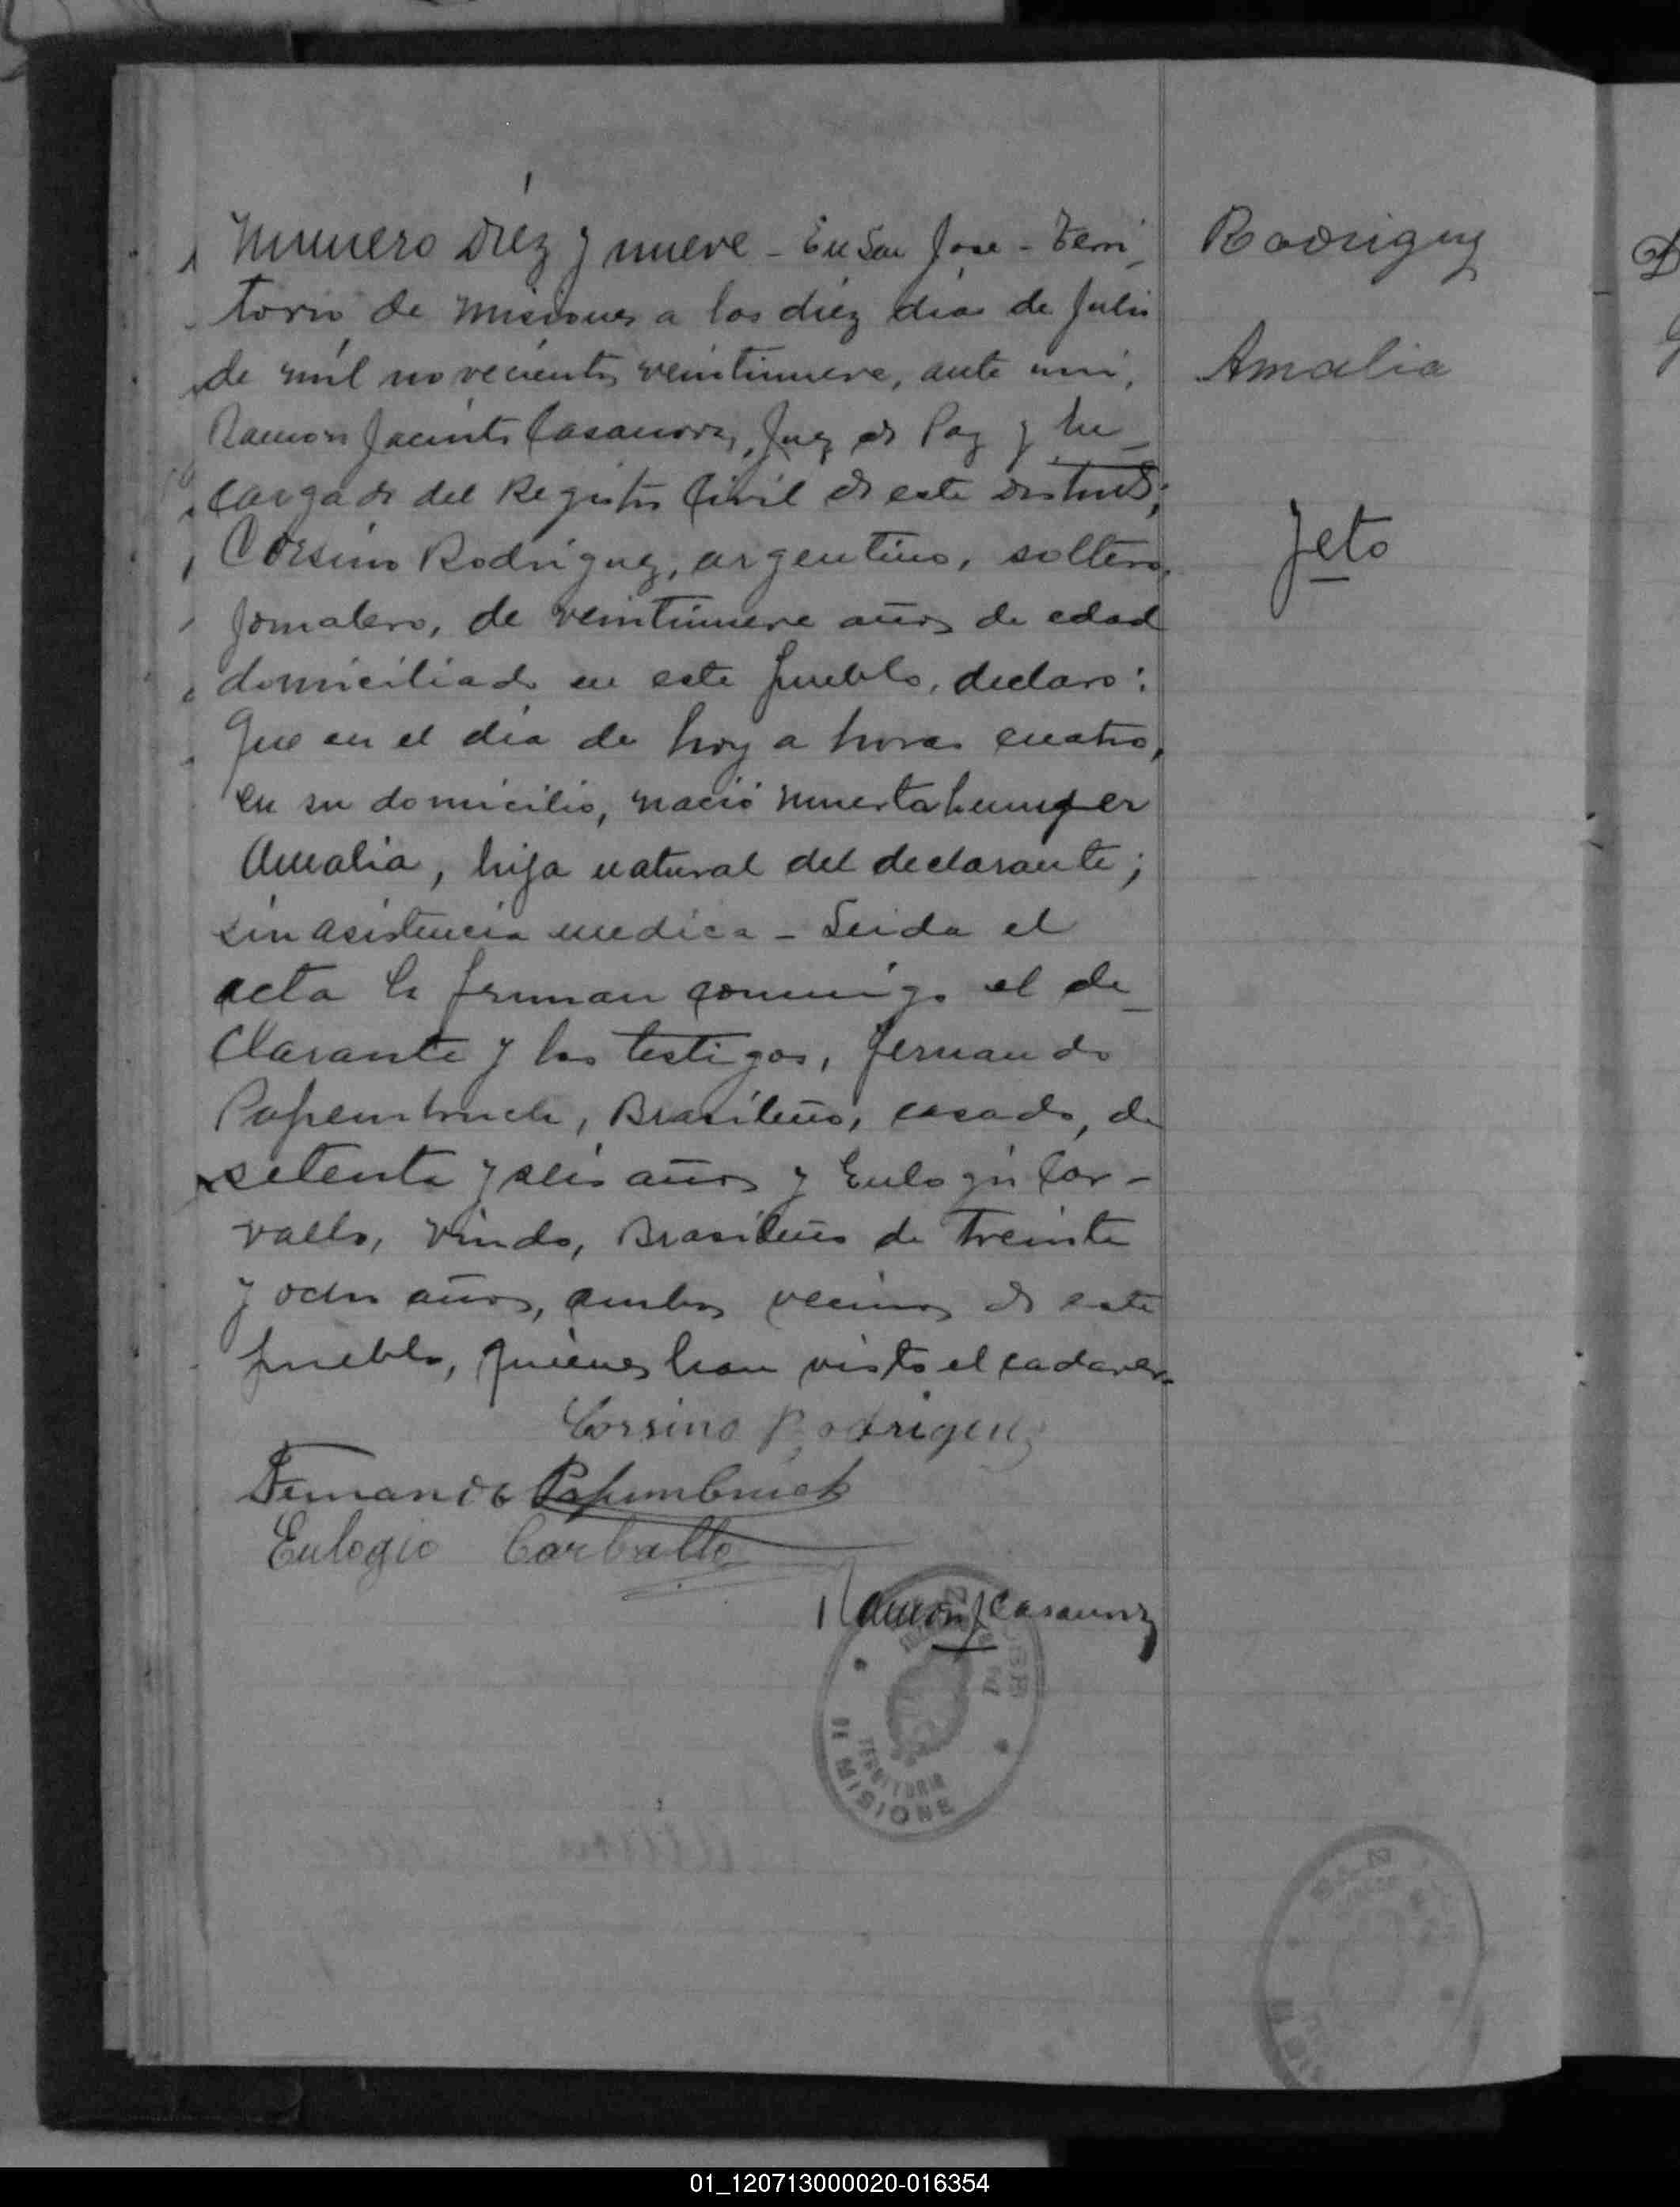 Numero Diez y nueve - En San Jose - Terri_
torio de Misiones a los diez dias de Julio
de mil novecientos veintinueve, ante mi,
Ramon Jacinto Casanova, Juez de Paz y En_
cargado del Registro Civil de este distrito;
Corsino Rodriguez, argentino, soltero,
jornalero, de veintinueve años de edad
domiciliado en este pueblo, declaro:
Que en el dia de hoy a horas cuatro,
en su domicilio, nació muerta la mujer
Amalia, hija natural del declarante;
sin asistencia medica - Leida el
acta la firman conmigo el de_
clarante y los testigos, Fernando
Papembruch, Brasileño, casado, de
setenta y seis años y Eulogio Car-
vallo, viudo, Brasileño de treinta
y ocho años, ambos vecinos de este
pueblo, quienes han visto el cadaver.
Corsino Rodriguez
Fernando Papembruck
Eulogio Carballo
Ramon J Casanova
TERRITORIO
DE MISIONE
Rodriguez
Amalia
Feto
01_120713000020-016354